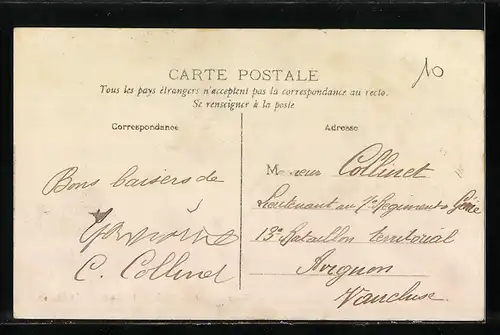 10
CARTE POSTALE
Tous les pays étrangers n'acceptent pas la correspondance au recto.
Se renseigner à la poste
Correspondance
Bons baisers de
C. Collinet
Adresse
Monsieur Collinet
Lieutenant au 7e Regiment Génie
13e Bataillon territorial
Avignon
Vaucluse